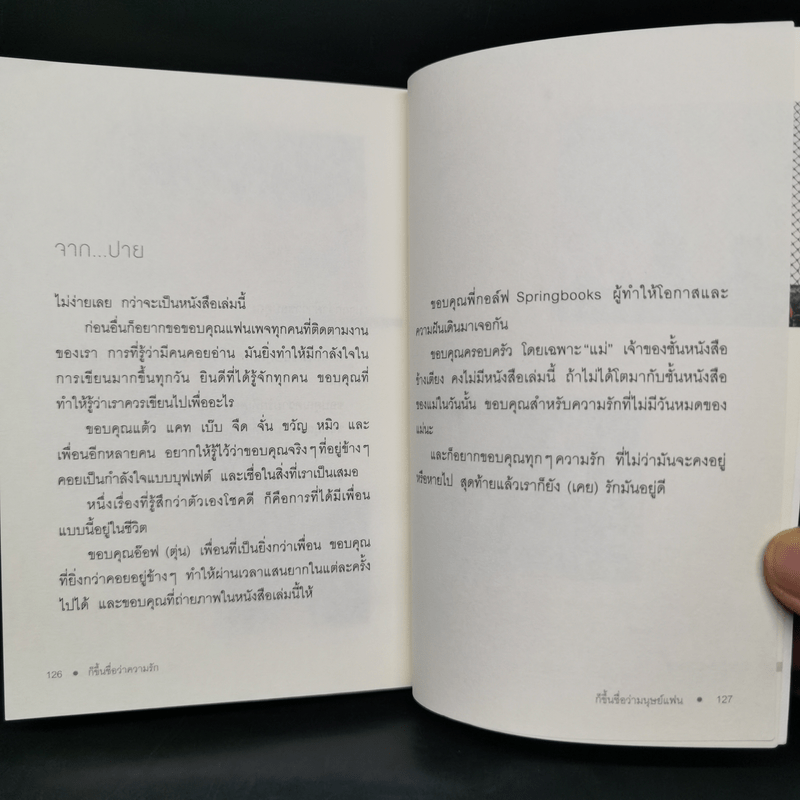 จาก...ปาย
ไม่ง่ายเลย กว่าจะเป็นหนังสือเล่มนี้
ก่อนอื่นก็อยากขอขอบคุณแฟนเพจทุกคนที่ติดตามงาน
ของเรา การที่รู้ว่ามีคนคอยอ่าน มันยิ่งทำให้มีกำลังใจใน
การเขียนมากขึ้นทุกวัน ยินดีที่ได้รู้จักทุกคน ขอบคุณที่
ทำให้รู้ว่าเราควรเขียนไปเพื่ออะไร
ขอบคุณแต้ว แคท เบ๊บ จึด จั่น ขวัญ หมิว และ
เพื่อนอีกหลายคน อยากให้รู้ไว้ว่าขอบคุณจริงๆ ที่อยู่ข้างๆ
คอยเป็นกำลังใจแบบบุฟเฟต์ และเชื่อในสิ่งที่เราเป็นเสมอ
หนึ่งเรื่องที่รู้สึกว่าตัวเองโชคดี ก็คือการที่ได้มีเพื่อน
แบบนี้อยู่ในชีวิต
ขอบคุณอ๊อฟ (ตุ่น) เพื่อนที่เป็นยิ่งกว่าเพื่อน ขอบคุณ
ที่ยิ่งกว่าคอยอยู่ข้างๆ ทำให้ผ่านเวลาแสนยากในแต่ละครั้ง
ไปได้ และขอบคุณที่ถ่ายภาพในหนังสือเล่มนี้ให้
126 • ก็ขึ้นชื่อว่าความรัก
ขอบคุณพี่กอล์ฟ Springbooks ผู้ทำให้โอกาสและ
ความฝันเดินมาเจอกัน
ขอบคุณครอบครัว โดยเฉพาะ “แม่” เจ้าของชั้นหนังสือ
ข้างเตียง คงไม่มีหนังสือเล่มนี้ ถ้าไม่ได้โตมากับชั้นหนังสือ
ของแม่ในวันนั้น ขอบคุณสำหรับความรักที่ไม่มีวันหมดของ
แม่นะ
และก็อยากขอบคุณทุกๆ ความรัก ที่ไม่ว่ามันจะคงอยู่
หรือหายไป สุดท้ายแล้วเราก็ยัง (เคย) รักมันอยู่ดี
ก็ขึ้นชื่อว่ามนุษย์แฟน • 127